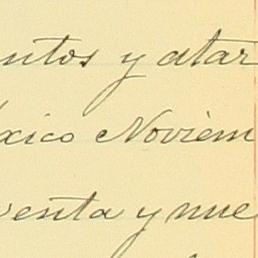 untos y atar
éxico Noviem
venta y nue